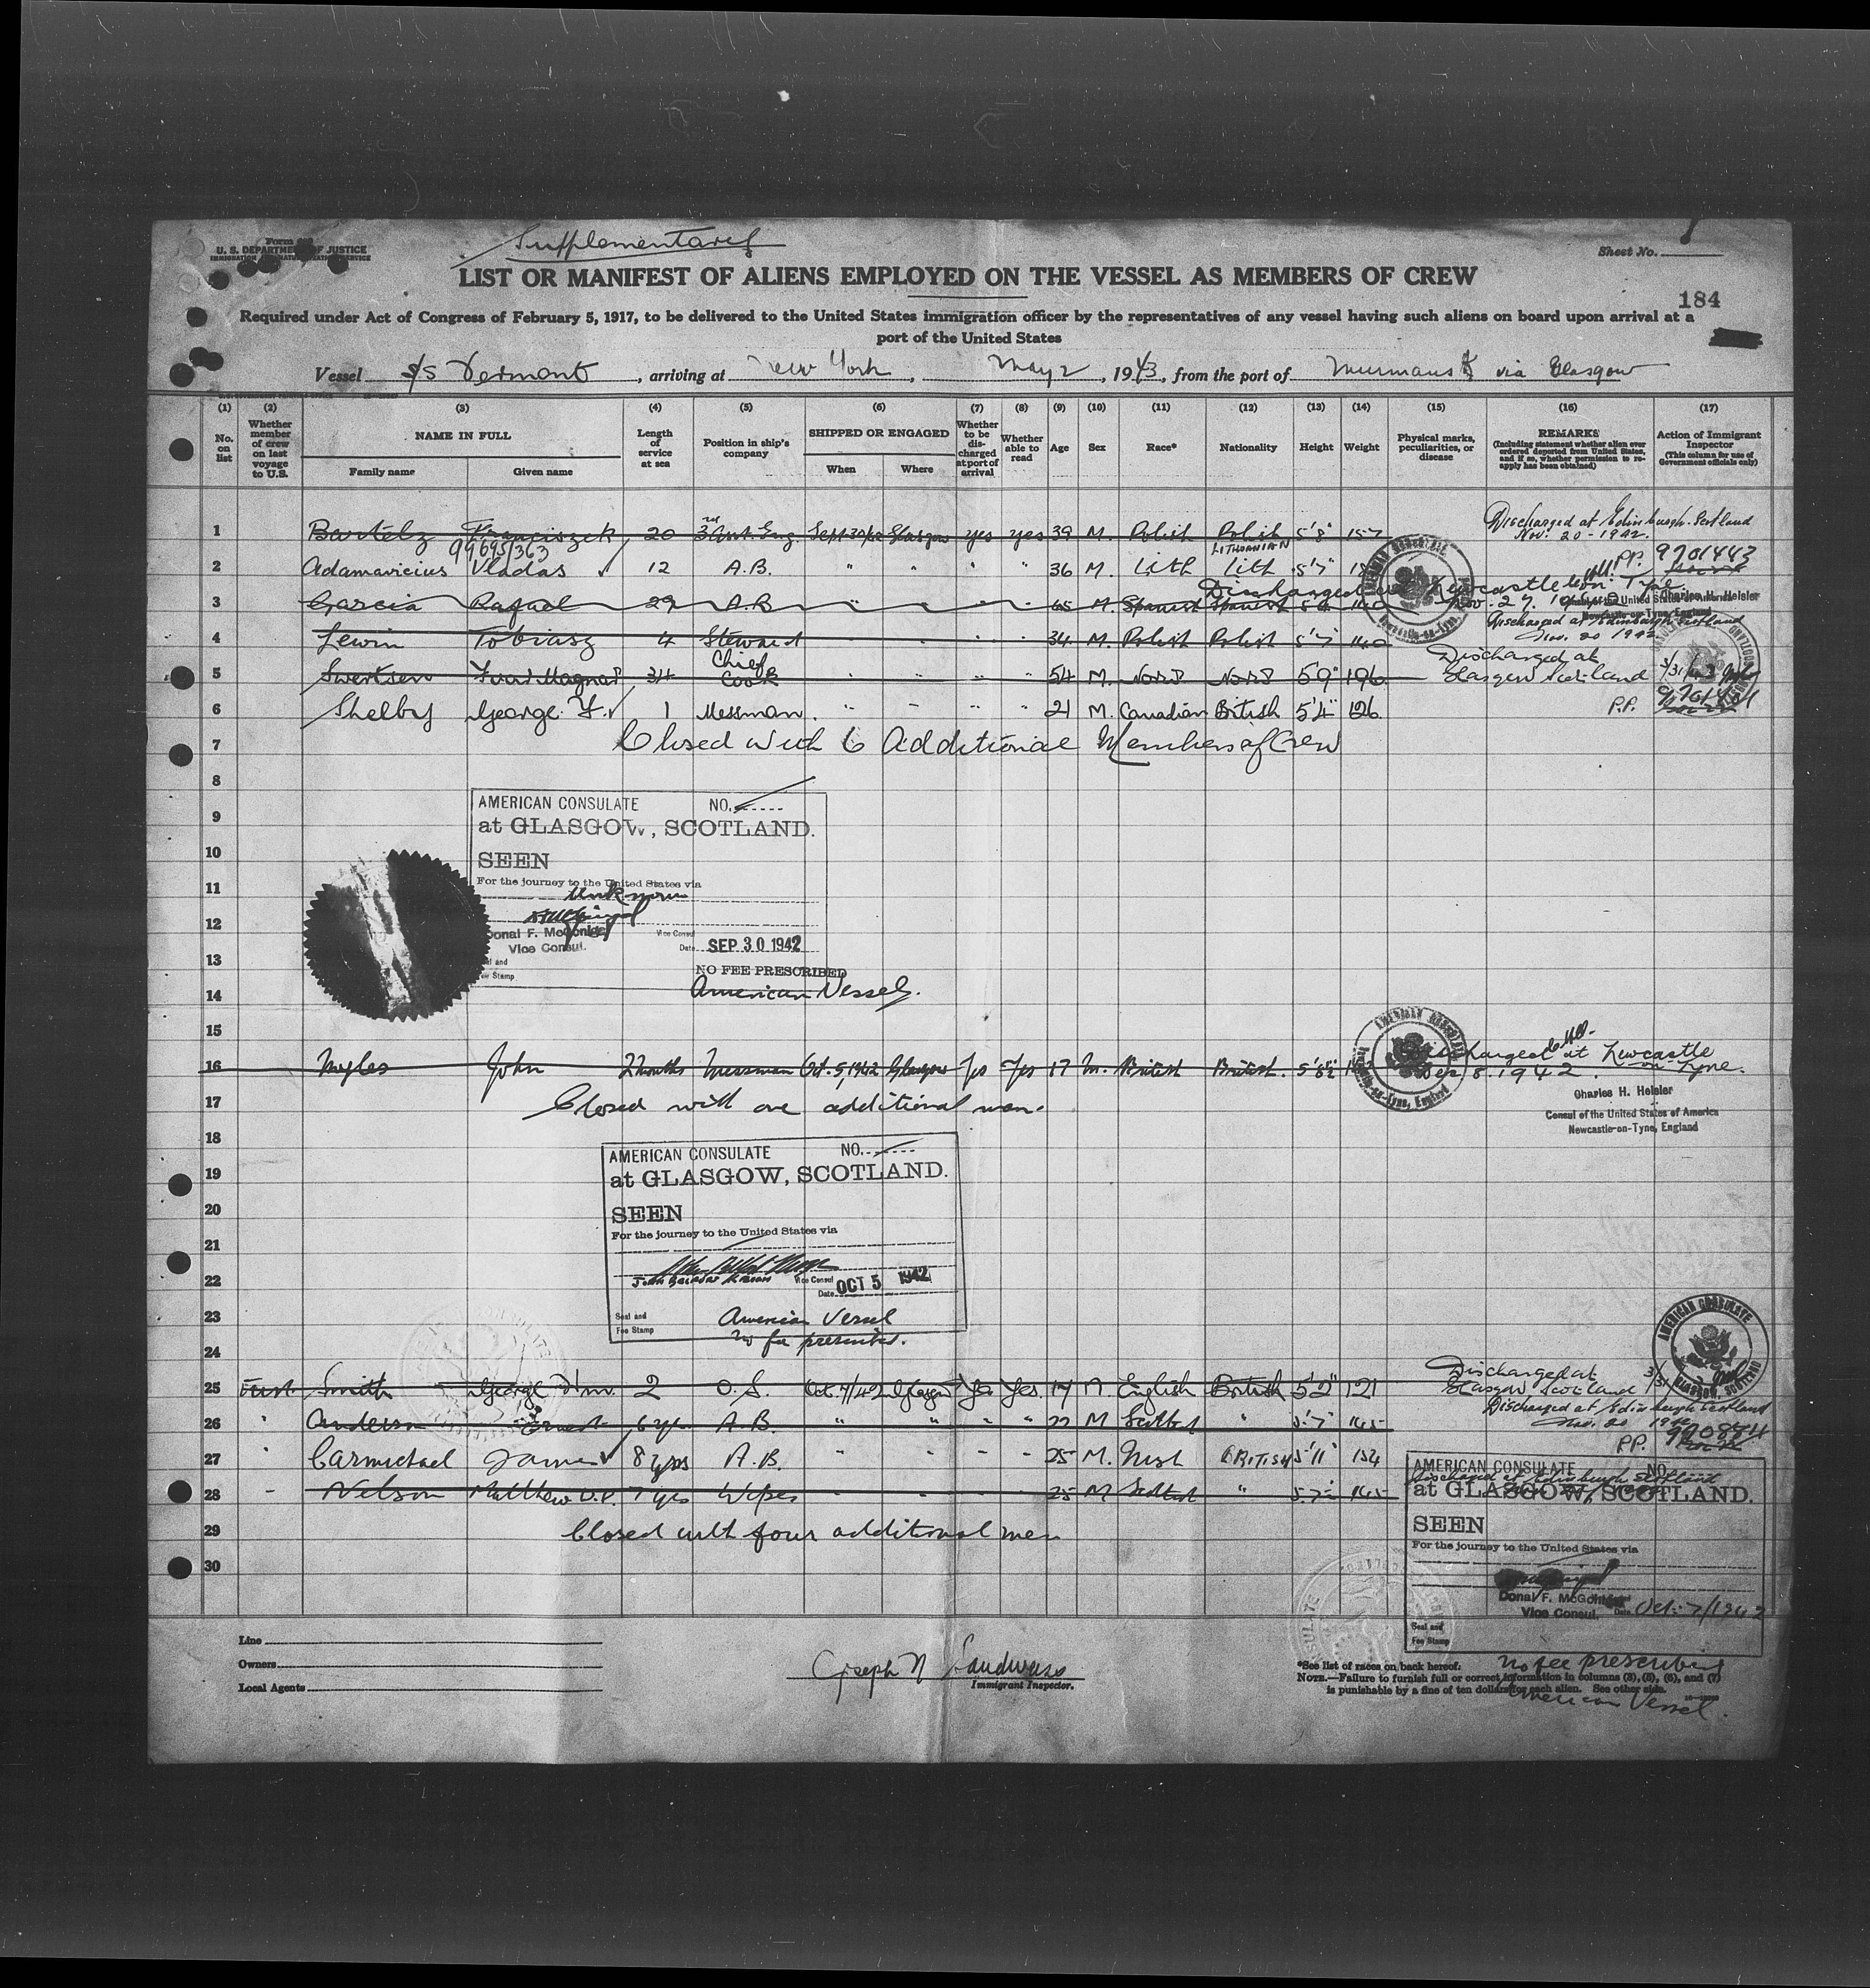 Supplementary
Form
U. S. DEPARTMENT OF JUSTICE
IMMIGRATION SERVICE
Sheet No. 1
LIST OR MANIFEST OF ALIENS EMPLOYED ON THE VESSEL AS MEMBERS OF CREW
184
Required under Act of Congress of February 5, 1917, to be delivered to the United States immigration officer by the representatives of any vessel having such aliens on board upon arrival at a
port of the United States
Vessel S/S Vermont, arriving at New York, May 2, 1943, from the port of Murmansk via Glasgow
(1) (2) (3) (4) (5) (6) (7) (8) (9) (10) (11) (12) (13) (14) (15) (16) (17)
No. on list
Whether member of crew on last voyage to U.S.
NAME IN FULL
Family name Given name
Length of service at sea
Position in ship's company
SHIPPED OR ENGAGED
When Where
Whether to be discharged at port of arrival
Whether able to read
Age
Sex
Race*
Nationality
Height
Weight
Physical marks, peculiarities, or disease
REMARKS
(Including statement whether alien ever ordered deported from United States, and if so, whether permission to reapply has been obtained)
Action of Immigrant Inspector
(This column for use of Government officials only)
1 Bartelz Franciszek 20 3rd Asst. Eng. Sept 30/42 Glasgow yes yes 39 M. Polish Polish 5'8" 157 Discharged at Edinburgh. Scotland
Nov. 20-1942.
99695/363
LITHUANIAN
2 Adamavicius Vladas 12 A.B. " " " " 36 M. Lith Lith 5'7" PP. 9701443
3 Garcia Rafael 29 A.B. " " " " 65 M. Spanish Spanish 5'6 140 Discharged at Newcastle on Tyne
Nov. 27. 1942
Charles H. Heisler
Consul of the United States of America
Newcastle-on-Tyne, England
4 Lewin Tobiasz 4 Steward " " " " 34 M. Polish Polish 5'7" 140 Discharged at Edinburgh Scotland
Nov. 20 1942
5 Magnar 34 Chief Cook " " " " 54 M. Nor Nor 5'9" 196 Discharged at
Glasgow Scotland 3/31/43
6 Shelby George F. 1 Messman. " " " " 21 M. Canadian British 5'4" 126 P.P.
7 Closed with 6 Additional Members of Crew
8
AMERICAN CONSULATE NO.
9
at GLASGOW, SCOTLAND.
10
SEEN
For the journey to the United States via
11
Unknown
12
Donal F. McGonigal
Vice Consul.
Vice Consul
Date SEP 30 1942
13
Seal and
Fee Stamp
NO FEE PRESCRIBED
14
American Vessel.
15
16 Myles John 2 months Messman Oct. 5, 1942 Glasgow Yes Yes 17 M. British British. 5'8½" Discharged at Newcastle
on-Tyne.
Dec 8. 1942.
Charles H. Heisler
Consul of the United States of America
Newcastle-on-Tyne, England
17 Closed with one additional man.
18
AMERICAN CONSULATE NO.
19
at GLASGOW, SCOTLAND.
20
SEEN
For the journey to the United States via
21
22
Vice Consul
Date OCT 5 1942
23
Seal and
Fee Stamp
American Vessel
No fee prescribed.
24
AMERICAN CONSULATE
GLASGOW, SCOTLAND
25 First Smith George Wm. 2 O.S. Oct. 7/42 Glasgow Yes Yes. 17 M. English British 5'2" 121 Discharged at
Glasgow, Scotland 3/31
26 " Anderson Ernest 6 yrs A.B. " " " " 22 M Scottish " 5'7" 145 Discharged at Edinburgh Scotland
Nov. 20 1942
27 " Carmichael James 8 yrs A.B. " " " " 25 M. Irish BRITISH 5'11" 134 PP. 970884
28 " Nelson Matthew D.P. 7 yrs Wiper " " " " 25 M Scottish " 5'7" 145 Discharged at Edinburgh Scotland
29 Closed with four additional men
30
AMERICAN CONSULATE NO.
at GLASGOW, SCOTLAND.
SEEN
For the journey to the United States via
Donal F. McGonigal
Vice Consul. Date Oct. 7/1942
Seal and
Fee Stamp
no fee prescribed
American Vessel.
Line
Owners
Local Agents
Immigrant Inspector.
*See list of races on back hereof.
NOTE.—Failure to furnish full or correct information in columns (3), (5), (6), and (7)
is punishable by a fine of ten dollars for each alien. See other side.